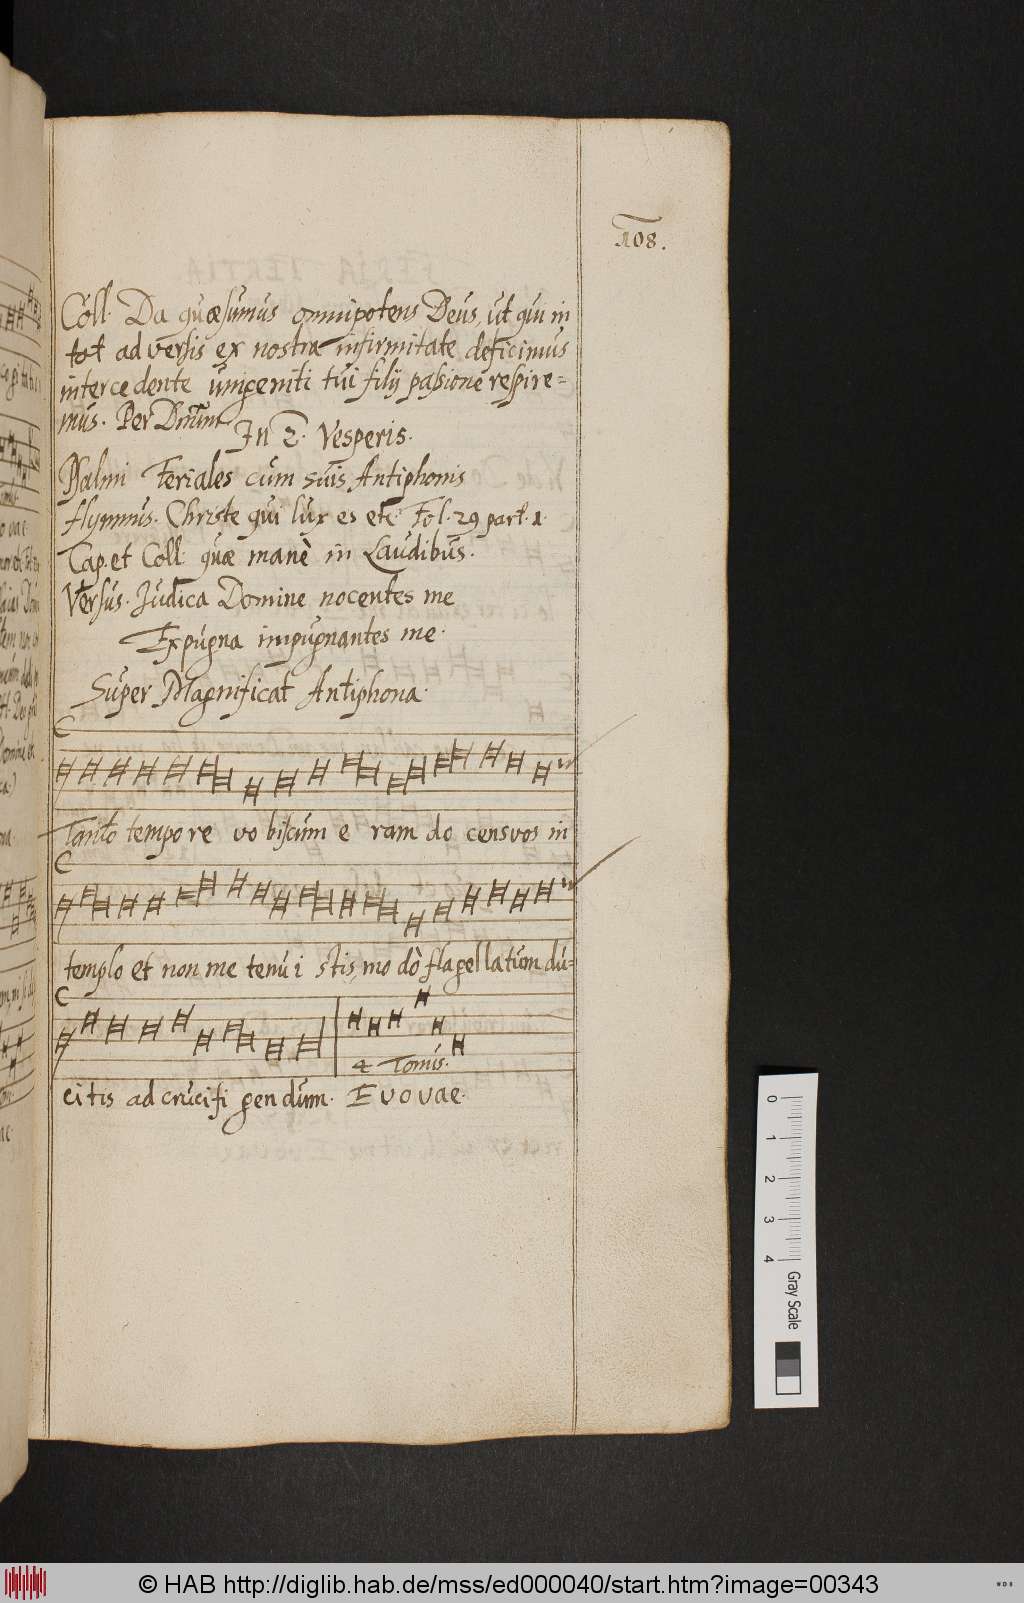 108.
Coll. Da quæsumus omnipotens Deus, ut qui in
tot adversis ex nostra infirmitate deficimus
intercedente unigeniti tui filij passione respire=
mus. Per Dnum
In 2. Vesperis.
Psalmi Feriales cum suis Antiphonis
Hymnus. Christe qui lux es etc. Fol. 29 part. 1.
Cap. et Coll. quæ manè in Laudibus.
Versus. Judica Domine nocentes me
Expugna impugnantes me.
Super Magnificat Antiphona.
Tanto tempore vo biscum e ram do cens vos in
templo et non me tenu i stis, mo dò flagellatum du=
4 Tonus.
citis ad crucifi gendum. E vo vae.
Gray Scale
0
1
2
3
4
© HAB http://diglib.hab.de/mss/ed000040/start.htm?image=00343